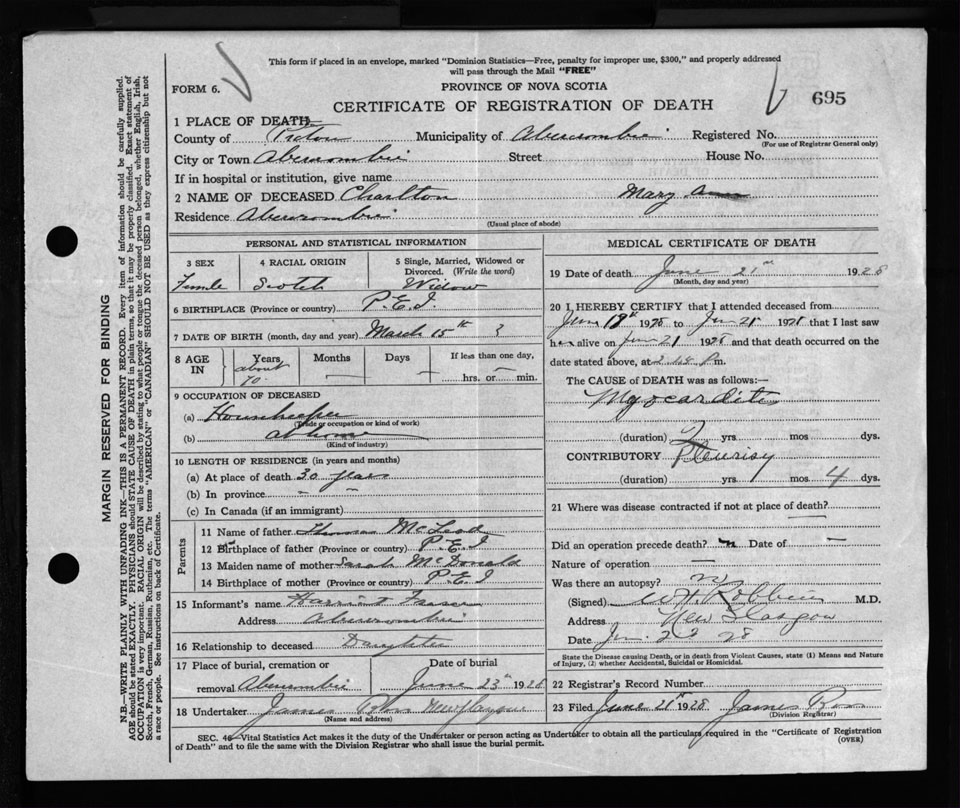 This form if placed in an envelope, marked "Dominion Statistics—Free, penalty for improper use, $300," and properly addressed
will pass through the Mail "FREE"
FORM 6.
PROVINCE OF NOVA SCOTIA
CERTIFICATE OF REGISTRATION OF DEATH
695
1 PLACE OF DEATH
County of Pictou Municipality of Abercrombie Registered No.
(For use of Registrar General only)
City or Town Abercrombie Street House No.
If in hospital or institution, give name
2 NAME OF DECEASED Charlton Mary Ann
Residence Abercrombie
(Usual place of abode)
PERSONAL AND STATISTICAL INFORMATION
3 SEX 4 RACIAL ORIGIN 5 Single, Married, Widowed or
Divorced. (Write the word)
Female Scotch Widow
6 BIRTHPLACE (Province or country) P.E.I.
7 DATE OF BIRTH (month, day and year) March 15th ?
8 AGE IN Years Months Days If less than one day,
about 70 — — hrs. or — min.
9 OCCUPATION OF DECEASED
(a) Housekeeper
(Trade or occupation or kind of work)
(b) at home
(Kind of industry)
10 LENGTH OF RESIDENCE (in years and months)
(a) At place of death 30 years
(b) In province — —
(c) In Canada (if an immigrant)
Parents
11 Name of father Thomas McLeod
12 Birthplace of father (Province or country) P.E.I
13 Maiden name of mother Sarah McDonald
14 Birthplace of mother (Province or country) P.E.I
15 Informant's name Harriet Fraser
Address Abercrombie
16 Relationship to deceased Daughter
17 Place of burial, cremation or Date of burial
removal Abercrombie June 23rd 1928
18 Undertaker James New Glasgow
(Name and address)
MEDICAL CERTIFICATE OF DEATH
19 Date of death June 21st 1928
(Month, day and year)
20 I HEREBY CERTIFY that I attended deceased from
June 18th 1928 to Jun 21 1928 that I last saw
her alive on Jun 21 1928 and that death occurred on the
date stated above, at P m.
The CAUSE OF DEATH was as follows:—
Myocarditis
(duration) 2 yrs mos dys.
CONTRIBUTORY Pleurisy
(duration) yrs mos 4 dys.
21 Where was disease contracted if not at place of death? —
Did an operation precede death? n Date of —
Nature of operation —
Was there an autopsy? no
(Signed) W.H. Robbins M.D.
Address New Glasgow
Date Jun 22 28
State the Disease causing Death, or in death from Violent Causes, state (1) Means and Nature
of Injury, (2) whether Accidental, Suicidal or Homicidal.
22 Registrar's Record Number
23 Filed June 21st 1928 James
(Division Registrar)
SEC. 46—Vital Statistics Act makes it the duty of the Undertaker or person acting as Undertaker to obtain all the particulars required in the "Certificate of Registration
of Death" and to file the same with the Division Registrar who shall issue the burial permit. (OVER)
MARGIN RESERVED FOR BINDING
N.B—WRITE PLAINLY WITH UNFADING INK—THIS IS A PERMANENT RECORD. Every item of information should be carefully supplied.
AGE should be stated EXACTLY. PHYSICIANS should STATE CAUSE OF DEATH in plain terms, so that it may be properly classified. Exact statement of
OCCUPATION is very important. RACIAL ORIGIN will be described by stating to what people or tongue the deceased person belonged, whether English, Irish,
Scotch, French, German, Russian, Ruthenian, etc. The terms "AMERICAN" or "CANADIAN" SHOULD NOT BE USED as they express citizenship but not
a race or people. See instructions on back of Certificate.